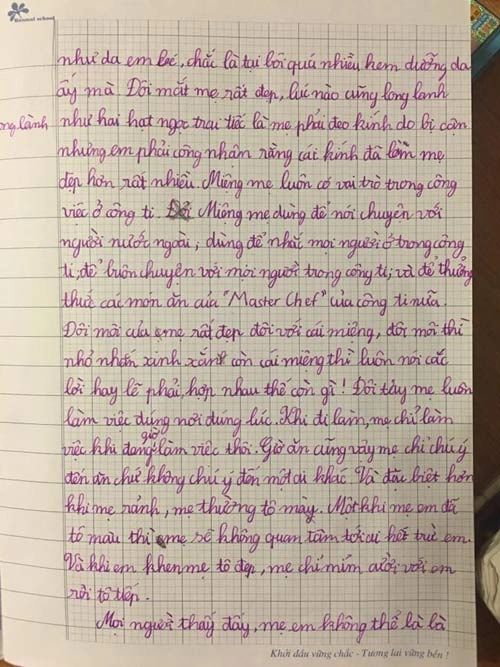 Bonnal school
như da em bé, chắc là tại bôi quá nhiều kem dưỡng da
ấy mà. Đôi mắt mẹ rất đẹp, lúc nào cũng long lanh
ng lành
như hai hạt ngọc trai tiếc là mẹ phải đeo kính do bị cận
nhưng em phải công nhận rằng cái kính đã làm mẹ
đẹp hơn rất nhiều. Miệng mẹ luôn có vai trò trong công
việc ở công ti. Miệng mẹ dùng để nói chuyện với
người nước ngoài; dùng để nhắc mọi người ở trong công
ti; để buôn chuyện với mọi người trong công ti; và để thưởng
thức các món ăn của "Master Chef" của công ti nữa.
Đôi môi của mẹ rất đẹp đôi với cái miệng, đôi môi thì
nhỏ nhắn xinh xắn còn cái miệng thì luôn nói các
lời hay lẽ phải, hợp nhau thế còn gì! Đôi tay mẹ luôn
làm việc đúng nơi đúng lúc. Khi đi làm, mẹ chỉ làm
việc khi đang giờ làm việc thôi. Giờ ăn cũng vậy mẹ chỉ chú ý
đến ăn chứ không chú ý đến một cái khác. Và đặc biệt hơn
khi mẹ rảnh, mẹ thường tô màu. Một khi mẹ em đã
tô màu thì mẹ sẽ không quan tâm tới ai hết trừ em.
Và khi em khen mẹ tô đẹp, mẹ chỉ mỉm cười với em
rồi tô tiếp.
Mọi người thấy đấy, mẹ em không thể là bà
Khởi đầu vững chắc - Tương lai vững bền !